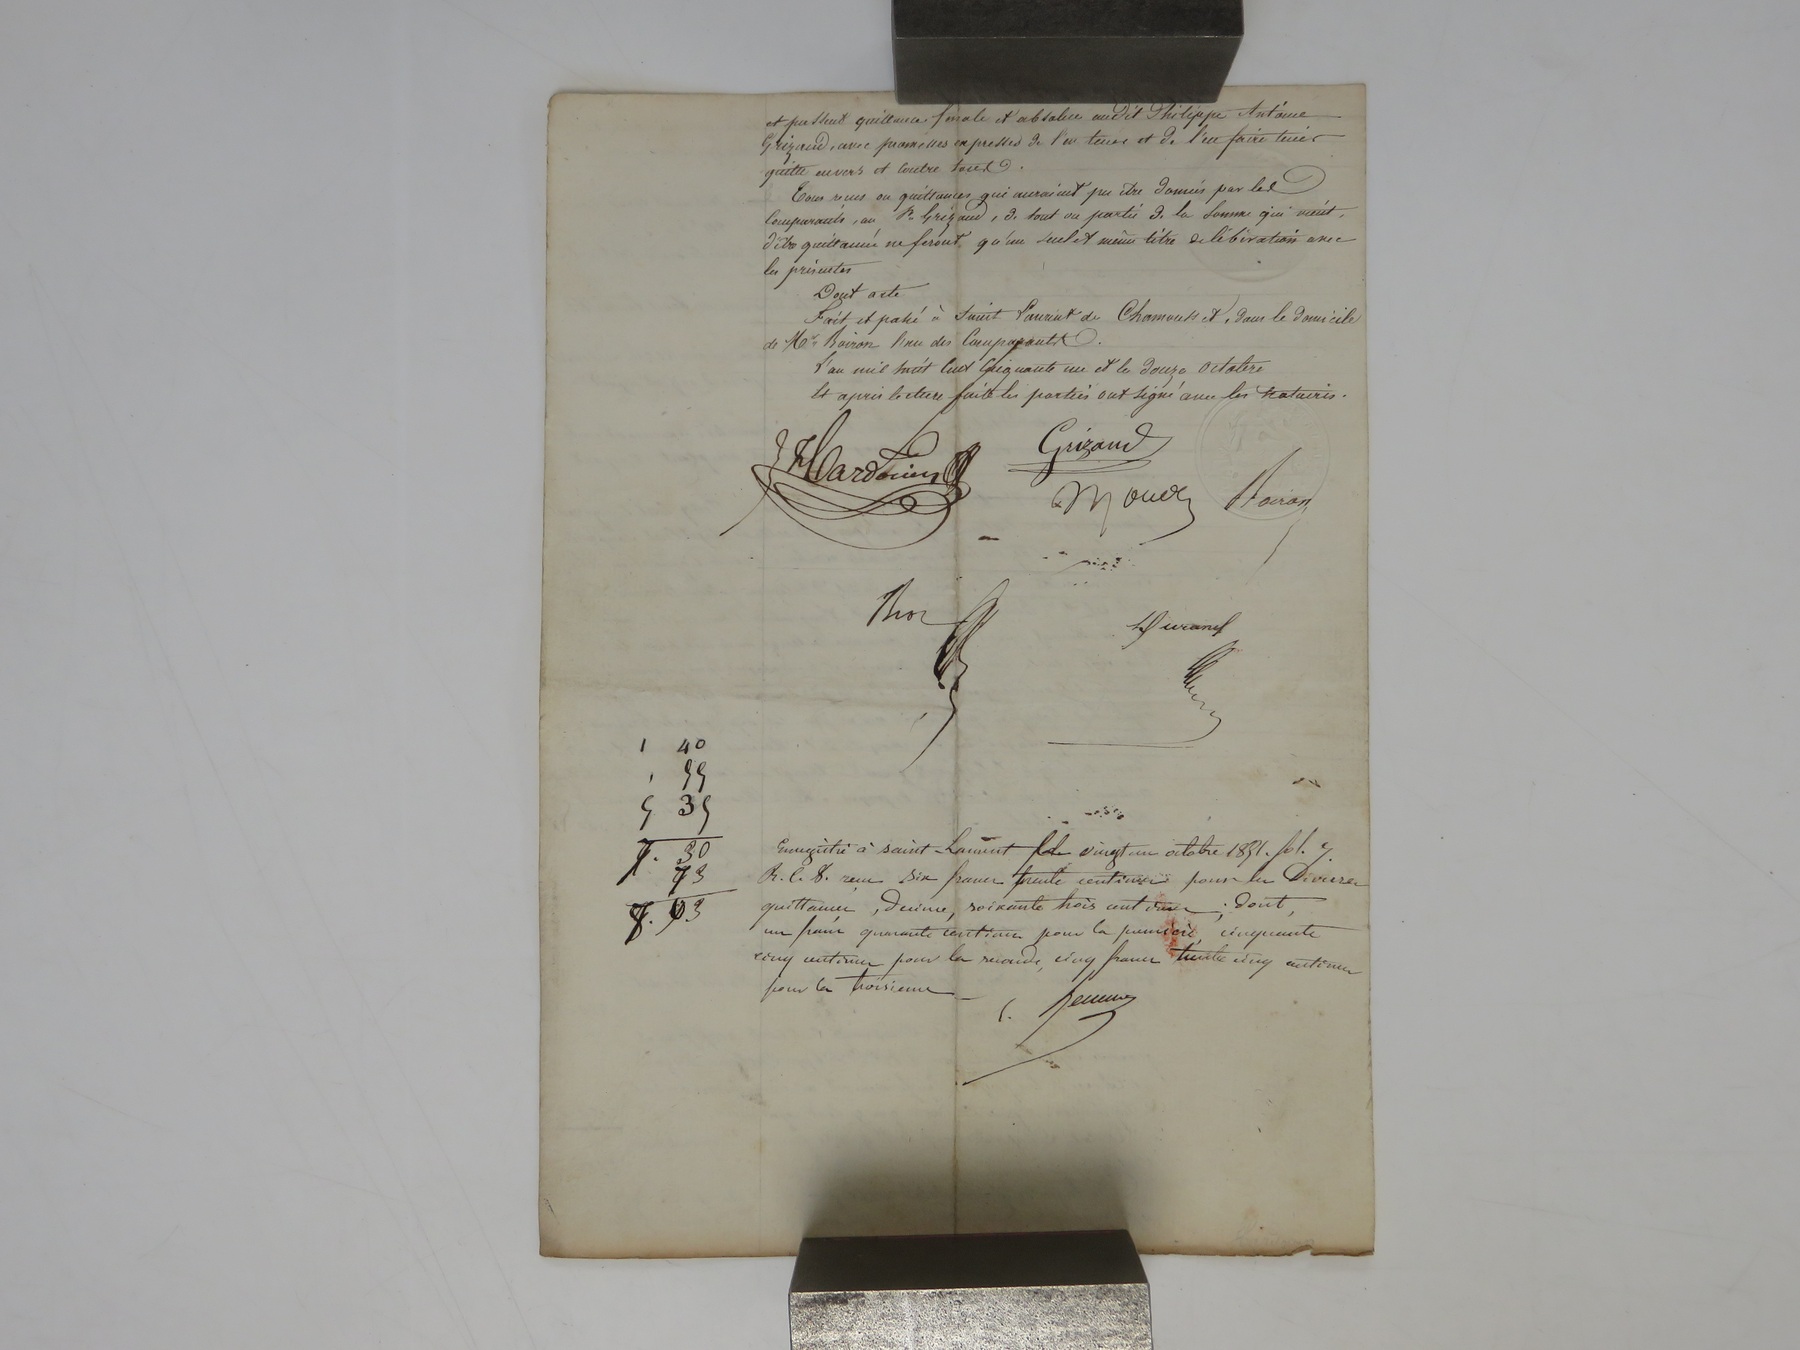 et passent quittance finale et absolue audit Philippe Antoine
Grizaud, avec promesses expresses de l'en tenir et de l'en faire tenir
quitte envers et contre tous.
Tous reçus ou quittances qui auraient pu être donnés par les
Comparants, au Sr. Grizaud, de tout ou partie de la somme qui vient,
d'être quittancée ne feront, qu'un seul et même titre de libération avec
les présentes
Dont acte
Fait et passé à Saint Laurent de Chamousset, dans le domicile
de Me. Boiron l'un des Comparants.
L'an mil huit cent cinquante un et le douze Octobre
Et après lecture faite les parties ont signé avec les notaires.
Hardouin
Grizaud
Boiron
Durand
1 40
, 55
5 35
7. 30
73
8. 03
Enregistré à saint Laurent le vingt un octobre 1851. fol. 7.
R. C. 8. reçu six francs trente centimes pour les diverses
quittances, décime, soixante trois centimes ; dont,
un franc quarante centimes pour la première, cinquante
cinq centimes pour la seconde, cinq francs trente cinq centimes
pour la troisième